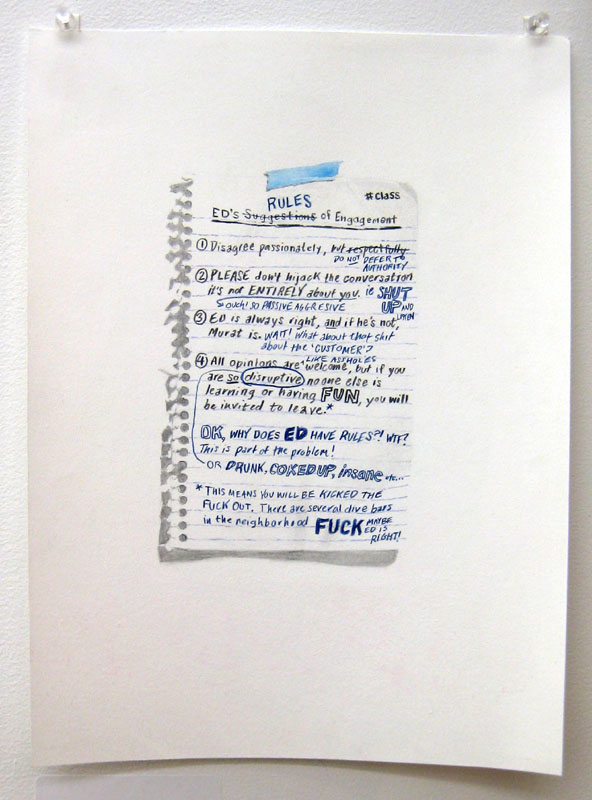 #class
RULES
ED's Suggestions of Engagement
① Disagree passionately, but respectfully
DO NOT DEFER TO
AUTHORITY
② PLEASE don't hijack the conversation
it's not ENTIRELY about you. ie SHUT
UP AND
LISTEN
ouch! SO PASSIVE AGGRESIVE
③ ED is always right, and if he's not,
Murat is. WAIT! What about that shit
about the 'CUSTOMER'?
LIKE ASSHOLES
④ All opinions are ^ welcome, but if you
are so disruptive no one else is
learning or having FUN, you will
be invited to leave.*
OK, WHY DOES ED HAVE RULES?! WTF?
This is part of the problem!
OR DRUNK, COKED UP, insane etc...
* THIS MEANS YOU WILL BE KICKED THE
FUCK OUT. There are several dive bars
in the neighborhood FUCK MAYBE
ED IS
RIGHT!